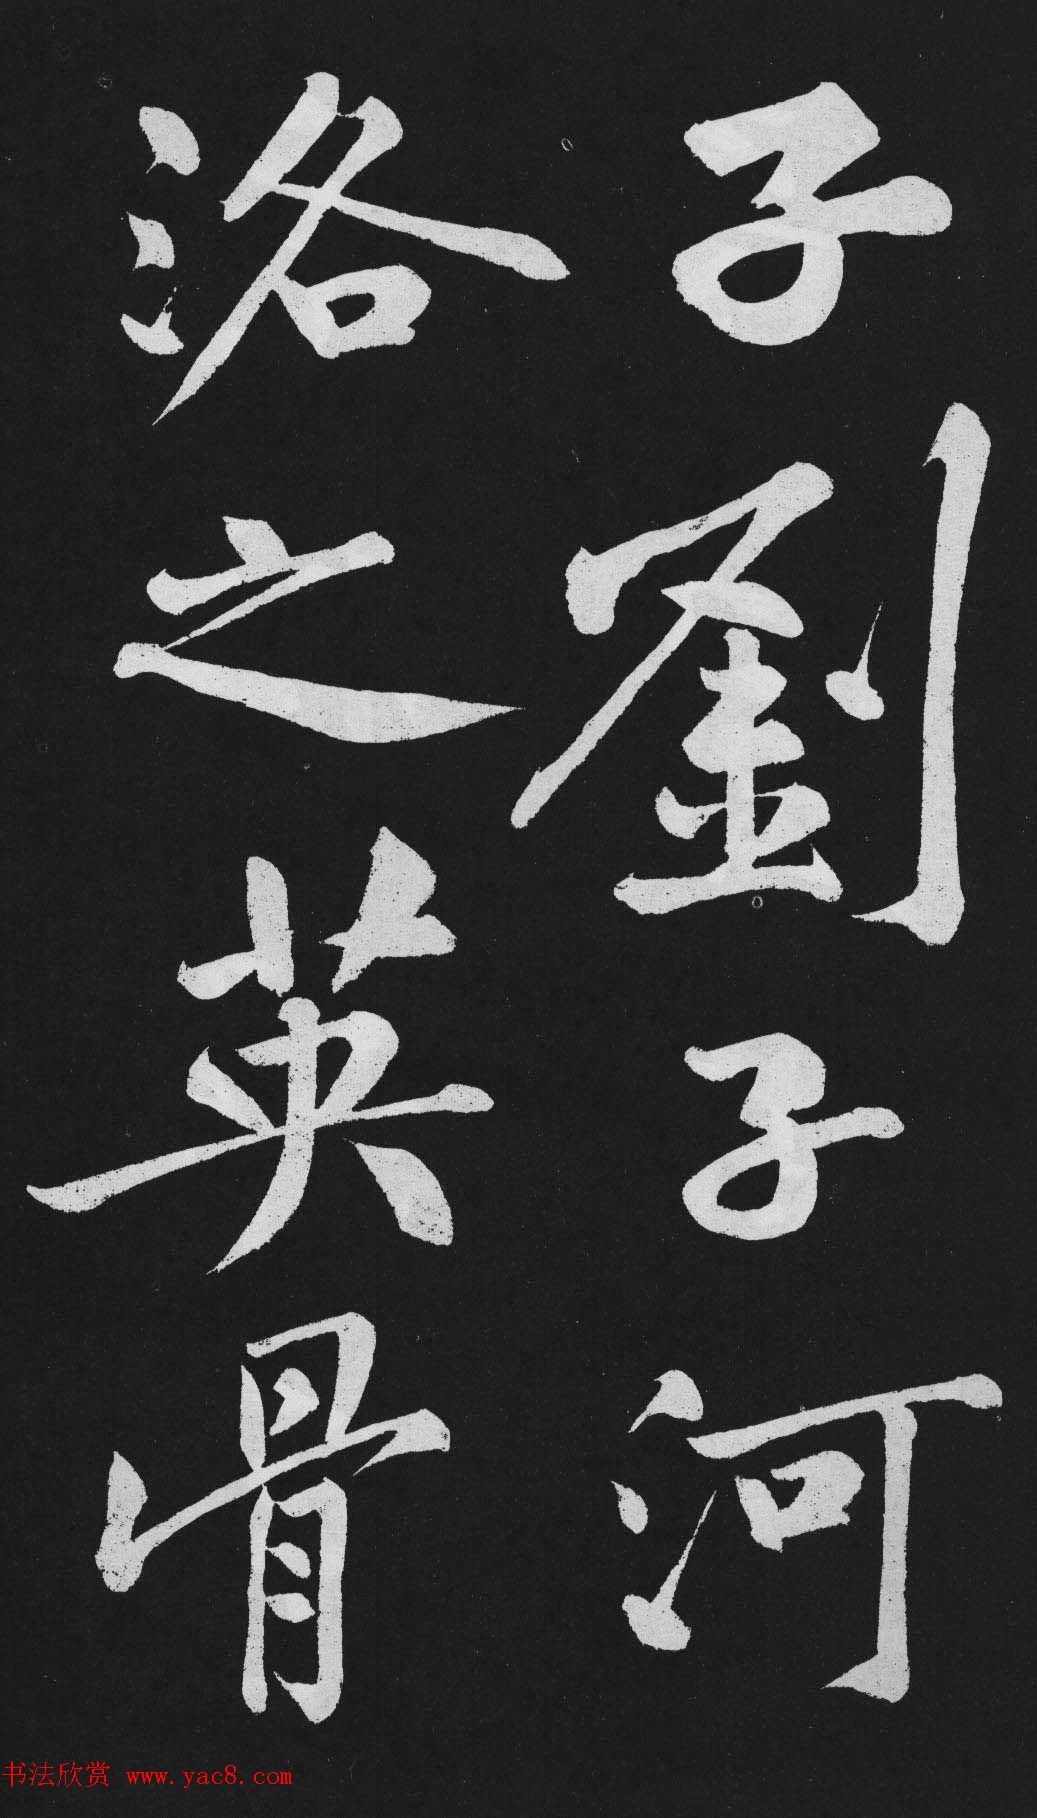 子劉子河
洛之英骨
书法欣赏 www.yac8.com